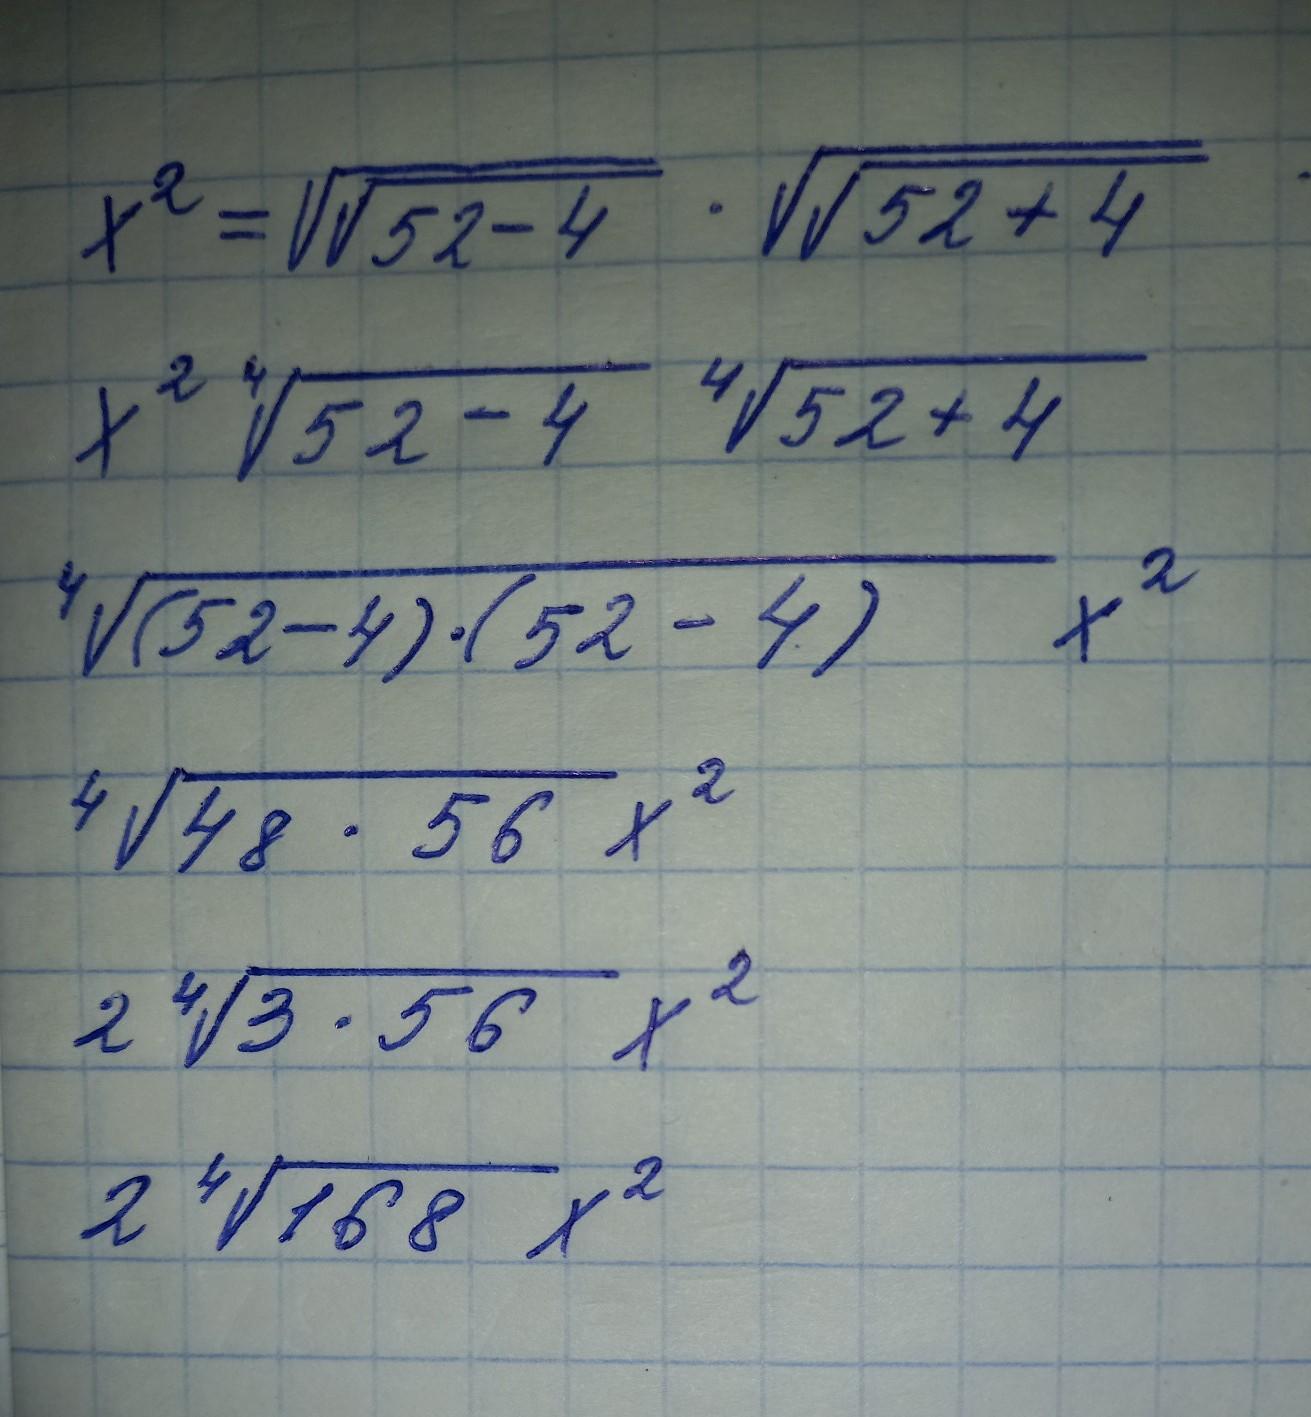 x² = √√52-4 · √√52+4
x² ⁴√52-4 ⁴√52+4
⁴√(52-4)·(52-4) x²
⁴√48 · 56 x²
2 ⁴√3 · 56 x²
2 ⁴√168 x²